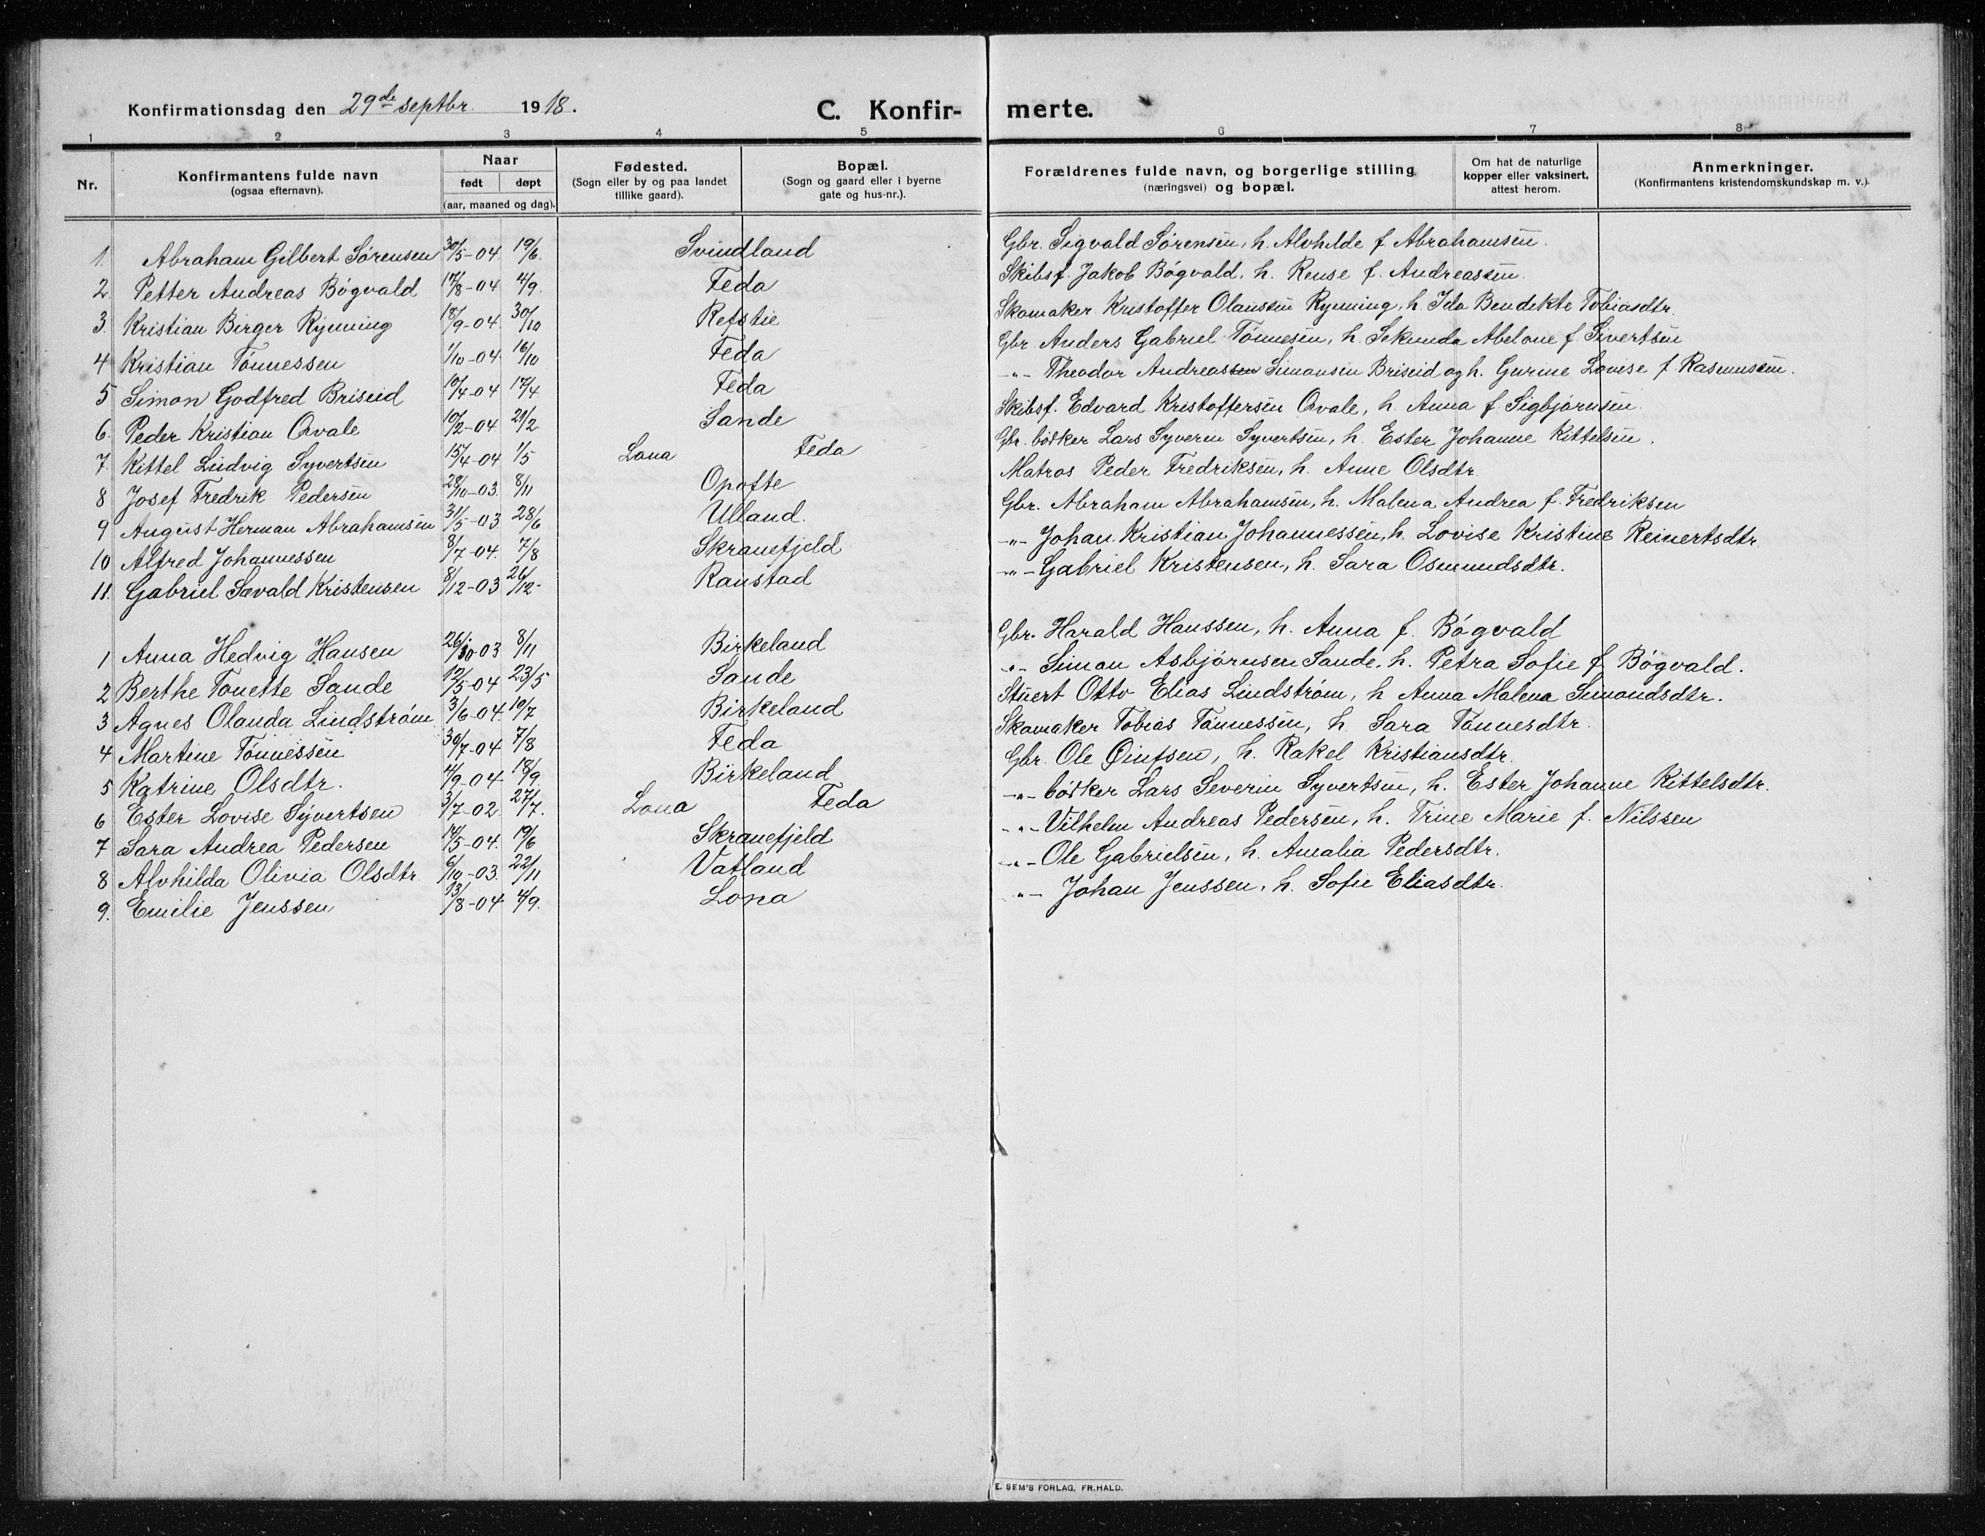 Konfirmationsdag den 29de septbr. 1918. C. Konfirmerte.
1 2 3 4 5 6 7 8
Nr. Konfirmantens fulde navn (ogsaa efternavn). Naar født døpt (aar, maaned og dag). Fødested. (Sogn eller by og paa landet tillike gaard). Bopæl. (Sogn og gaard eller i byerne gate og hus-nr.). Forældrenes fulde navn, og borgerlige stilling (næringsvei) og bopæl. Om hat de naturlige kopper eller vaksinert, attest herom. Anmerkninger. (Konfirmantens kristendomskundskap m. v.).
1 Abraham Gilbert Sørensen 30/5-04 19/6. Svindland Gbr. Sigvald Sørensen, h. Alvhilde f Abrahamsen.
2 Petter Andreas Bøgvald 17/8-04 4/9. Feda Skibsf. Jakob Bøgvald, h. Rense f. Andreassen.
3. Kristian Birger Rynning 18/9-04. 30/10 Refstie Skomaker Kristoffer Olaussen Rynning, h Ida Bendikte Tobiasdtr.
4 Kristian Tønnessen 1/10-04. 16/10 Feda Gbr Anders Gabriel Tønnesen, h. Sekunda Abelone f Sivertsen
5 Simon Godfred Briseid 10/4-04 17/4 Feda -"- Theodor Andreassen Simonsen Briseid og h. Gurine Lovise f. Rasmussen.
6. Peder Kristian Qvale 10/2-04 21/2 Sande Skibsf. Edvard Kristoffersen Qvale, h. Anna f. Sigbjørnsen.
7. Kittel Ludvig Syvertsen 15/4-04 1/5 Lona Feda Gbr. bødker Lars Syvern Syvertsen, h. Ester Johanne Kittelsen.
8 Josef Fredrik Pedersen 28/10-03. 8/11 Opofte Matros Peder Fredriksen, h. Anne Olsdtr
9 August Herman Abrahamsen 31/5-03 28/6 Ulland. Gbr. Abraham Abrahamsen, h. Malena Andrea f. Fredriksen
10 Alfred Johannessen 8/7-04. 7/8 Skranefjeld -"- Johan Kristian Johannessen, h. Lovise Kristine Reinertsdtr.
11. Gabriel Sævald Kristensen 8/12-03 26/12. Raustad -"- Gabriel Kristensen, h. Sara Osmundsdtr.
1 Anna Hedvig Hansen 26/10-03 8/11 Birkeland Gbr. Harald Hanssen, h. Anna f. Bøgvald
2 Berthe Tonette Sande 12/5-04 23/5 Sande -"- Simon Asbjørnsen Sande. h. Petra Sofie f. Bøgvald.
3 Agnes Olanda Lindstrøm 3/6-04. 10/7 Birkeland Stuert Otto Elias Lindstrøm, h Anna Malena Simondsdtr.
4 Martine Tønnessen 30/7-04 7/8 Feda Skomaker Tobias Tønnessen, h. Sara Tønnesdtr.
5 Katrine Olsdtr. 4/9-04 18/9. Birkeland Gbr. Ole Øiufsen, h. Rakel Kristiansdtr.
6 Ester Lovise Syvertsen 3/7-02 27/7. Lona Feda -"- bødker Lars Severin Syvertsen, h. Ester Johanne Kittelsdtr.
7 Sara Andrea Pedersen 14/5-04. 19/6 Skranefjeld -"- Vilhelm Andreas Pedersen, h. Trine Marie f. Nilssen
8 Alvhilda Olivia Olsdtr 6/10-03. 22/11 Vatland -"- Ole Gabrielsen, h. Amalia Pedersdtr.
9. Emilie Jenssen 13/8-04 4/9. Lona -"- Johan Jenssen, h. Sofie Eliasdtr.
E. SEM'S FORLAG, FR.HALD.